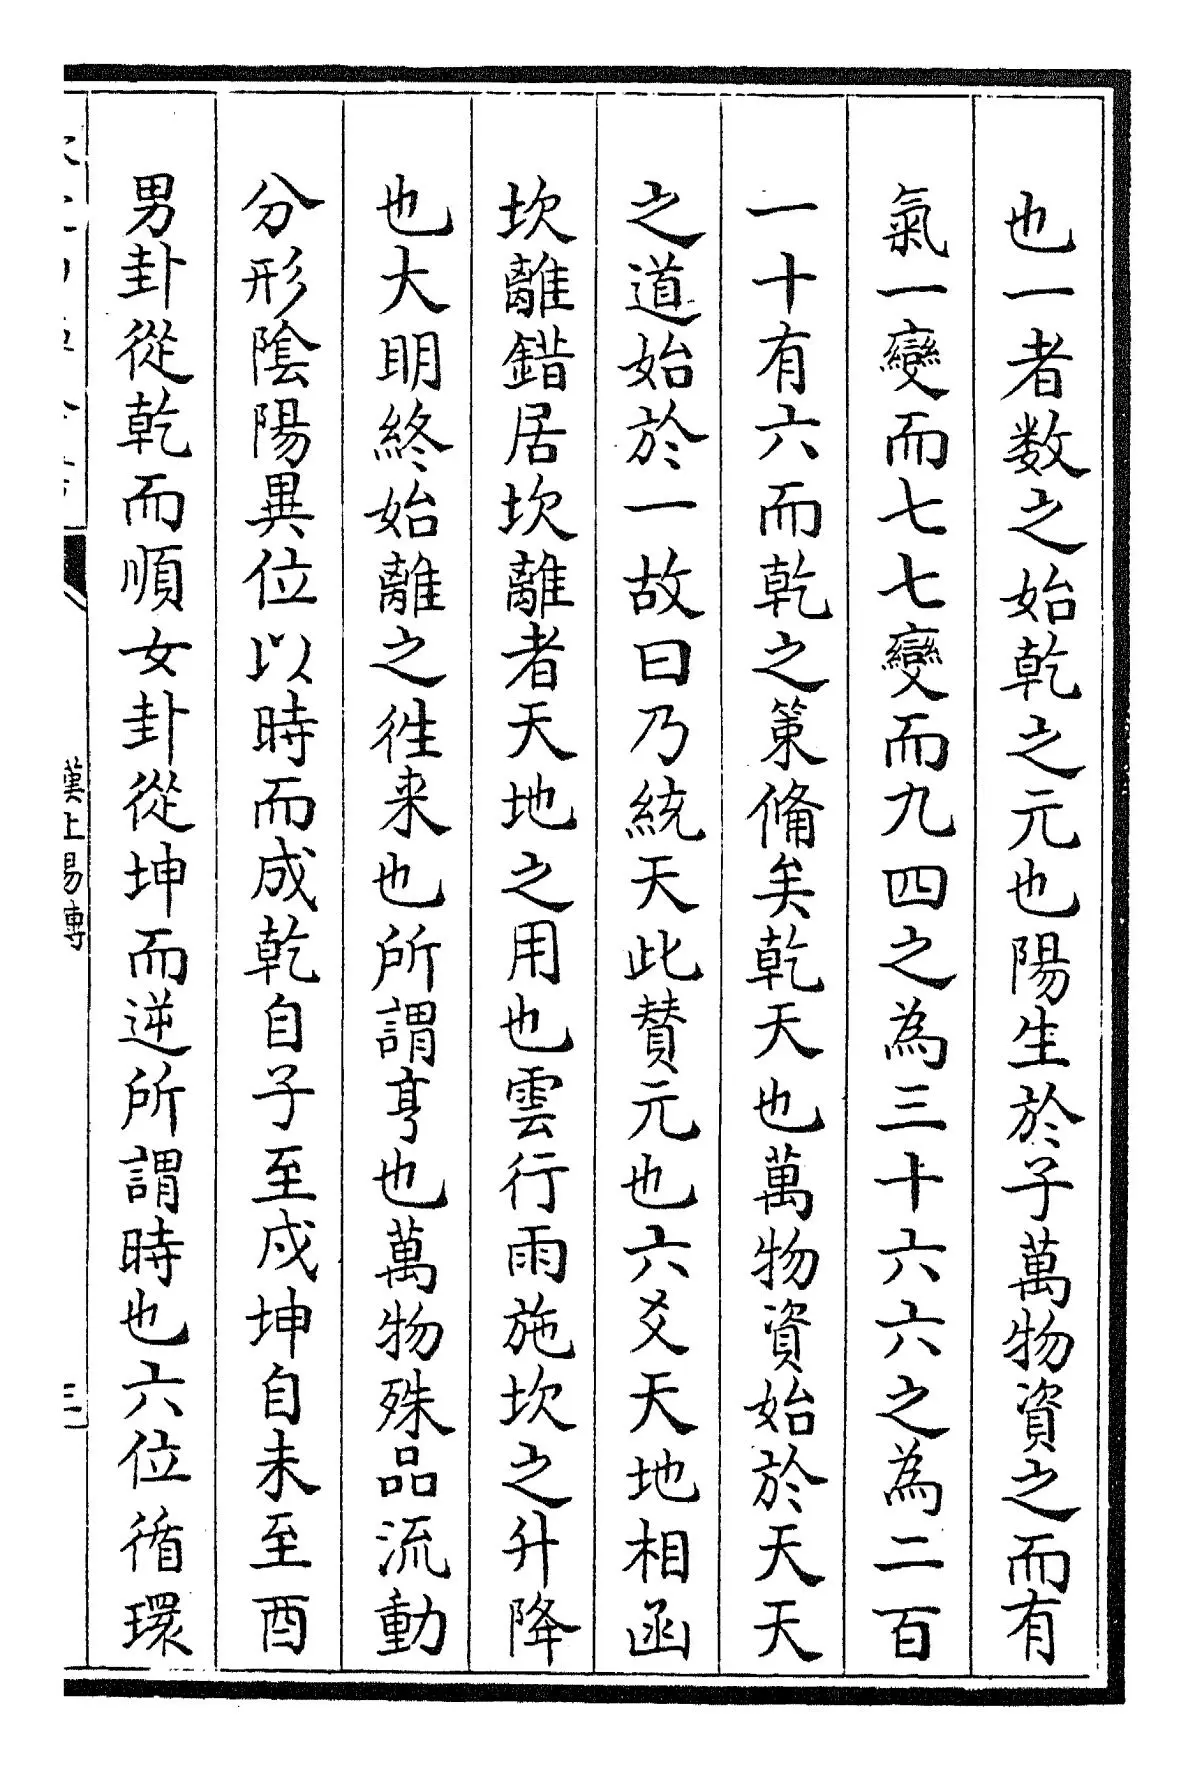 也一者数之始乾之元也陽生於子萬物資之而有
氣一變而七七變而九四之為三十六六之為二百
一十有六而乾之策備矣乾天也萬物資始於天天
之道始於一故曰乃統天此賛元也六爻天地相函
坎離錯居坎離者天地之用也雲行雨施坎之升降
也大明終始離之徃来也所謂亨也萬物殊品流動
分形隂陽異位以時而成乾自子至戍坤自未至酉
男卦從乾而順女卦從坤而逆所謂時也六位循環
漢上易傳
三